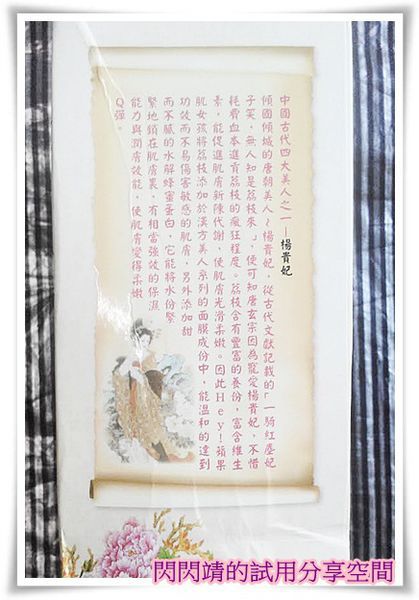 中國古代四大美人之一—楊貴妃
傾國傾城的唐朝美人～楊貴妃，從古代文獻記載的「一騎紅塵妃
子笑，無人知是荔枝來」，便可知唐玄宗因為寵愛楊貴妃，不惜
耗費血本進貢荔枝的瘋狂程度。荔枝含有豐富的養份，富含維生
素，能促進肌膚新陳代謝，使肌膚光滑柔嫩。因此Hey!蘋果
肌女孩將荔枝添加於漢方美人系列的面膜成份中，能溫和的達到
功效而不易傷害敏感的肌膚，另外添加甜
而不膩的水解蜂蜜蛋白，它能將水份緊
緊地鎖在肌膚裏，有相當強效的保濕
能力與潤膚效能，使肌膚變得柔嫩
Q彈。
閃閃靖的試用分享空間